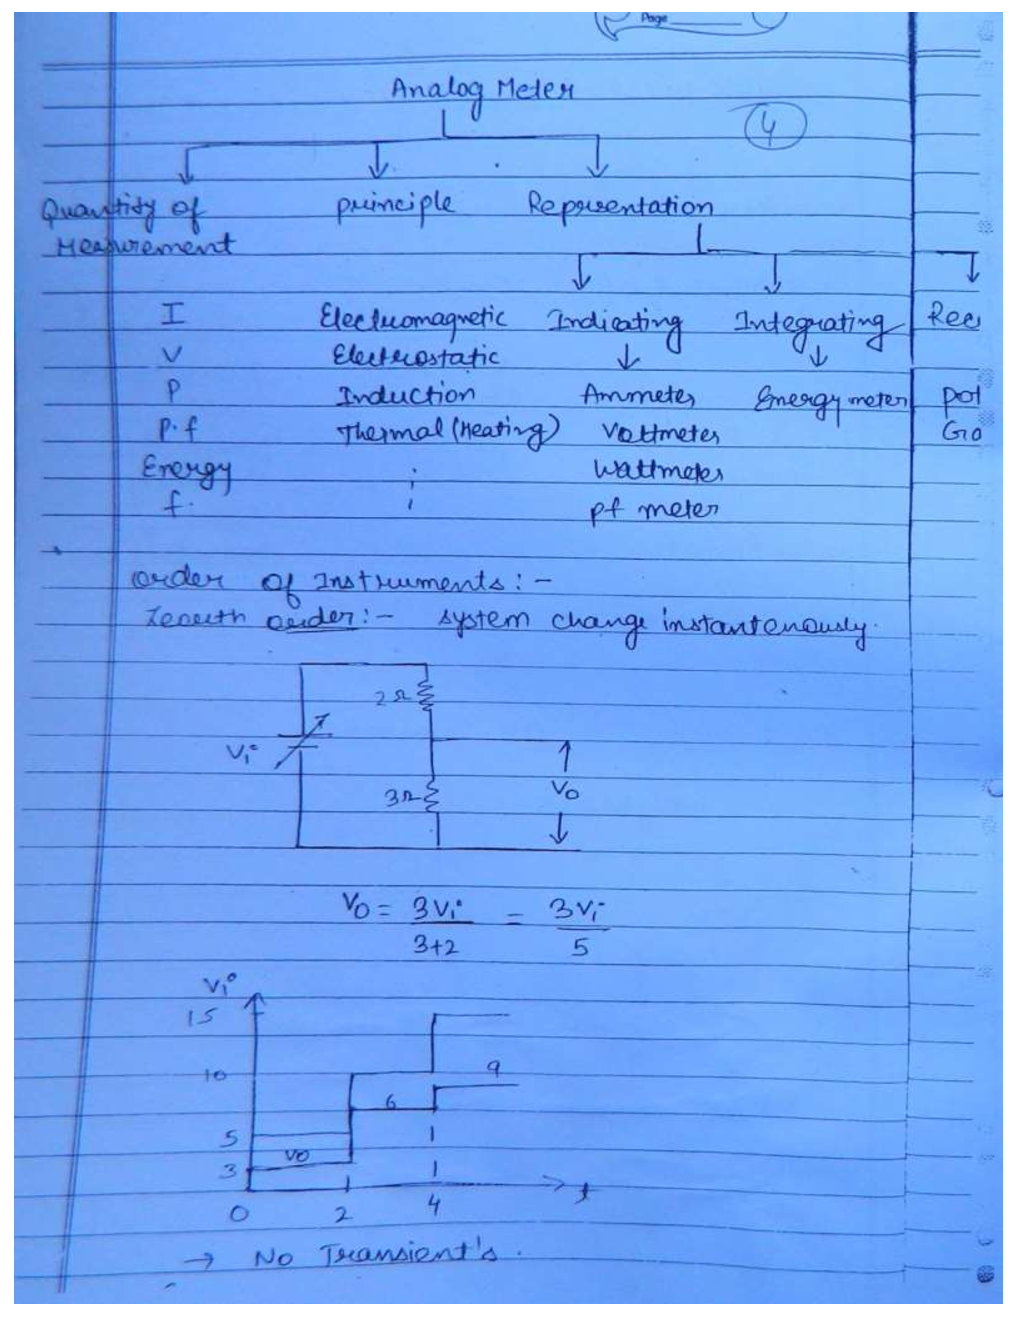 Page
Analog Meter
4
Quantity of principle Representation
Measurement
I Electromagnetic Indicating Integrating Rec
V Electrostatic
P Induction Ammeter Energy meter pot
P.f Thermal (Heating) Voltmeter
Energy Wattmeter
f. pf meter
Order of Instruments:-
Zeroeth order:- system change instantenously.
2Ω
Vi
3Ω Vo
Vo = 3Vi / 3+2 = 3Vi / 5
Vi
15
10 9
6
5
Vo
3
0 2 4 t
→ No Transient's.